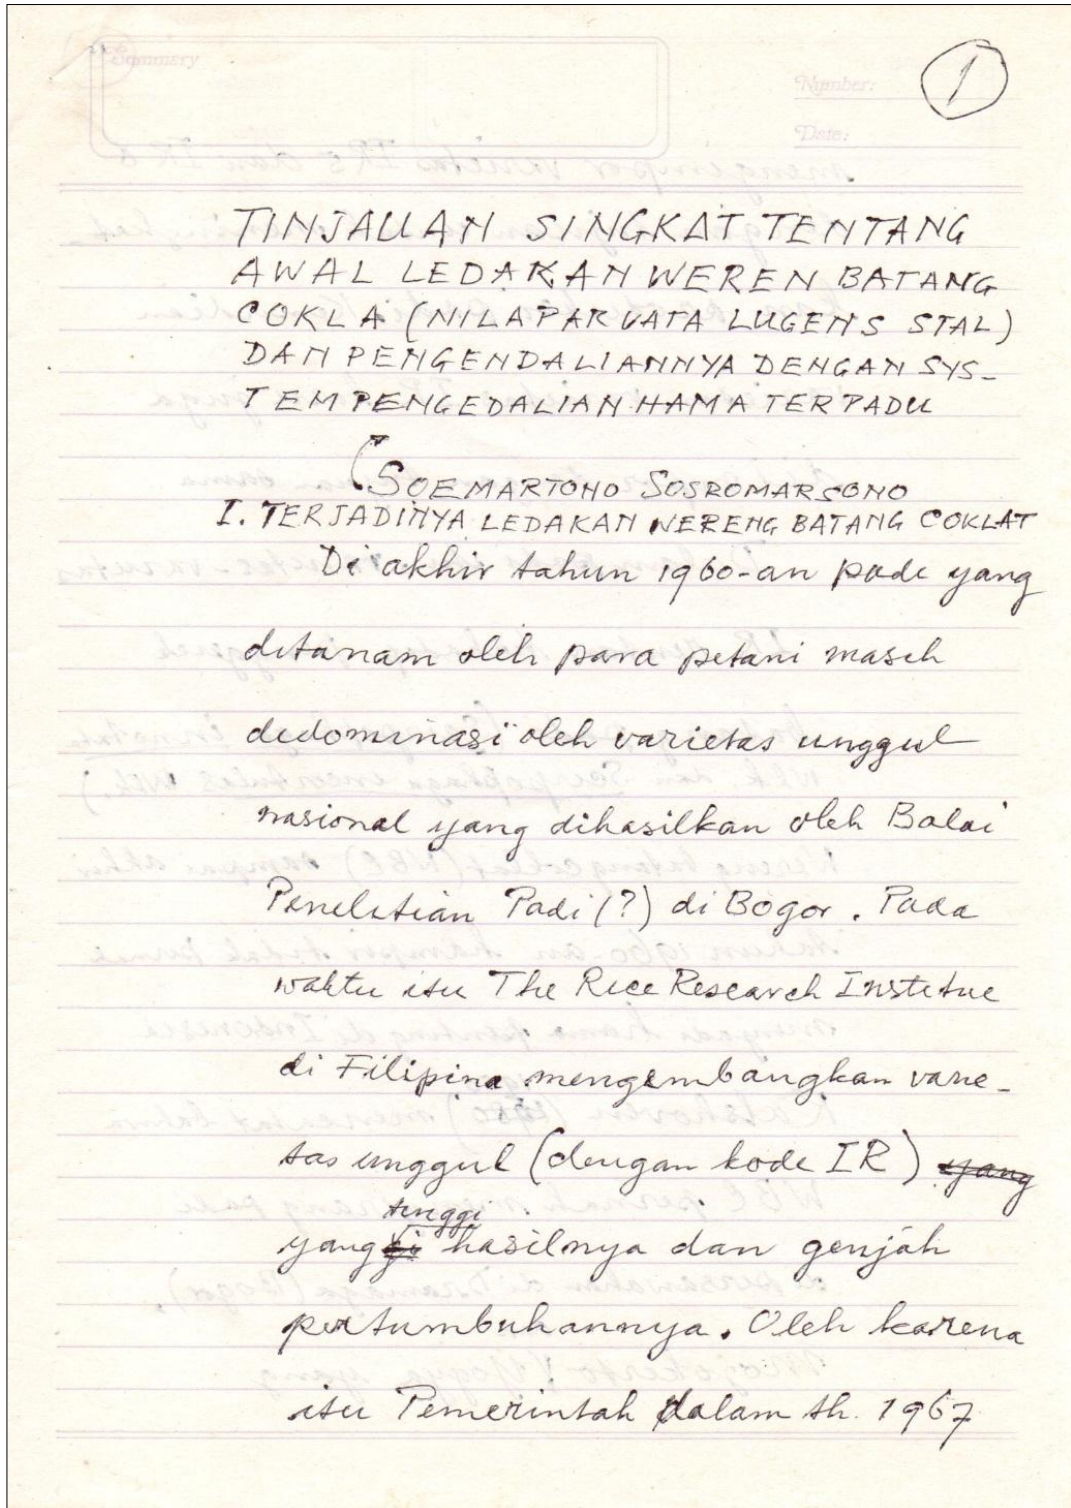 Summary
Number:
1
Date:
TINJAUAN SINGKAT TENTANG
AWAL LEDAKAN WEREN BATANG
COKLA (NILAPARVATA LUGENS STAL)
DAN PENGENDALIANNYA DENGAN SYS-
TEM PENGEDALIAN HAMA TERPADU
SOEMARTONO SOSROMARSONO
I. TERJADINYA LEDAKAN WERENG BATANG COKLAT
Di akhir tahun 1960-an padi yang
ditanam oleh para petani masih
didominasi oleh varietas unggul
nasional yang dihasilkan oleh Balai
Penelitian Padi (?) di Bogor. Pada
waktu itu The Rice Research Institue
di Filipina mengembangkan varie-
tas unggul (dengan kode IR) yang
yang tinggi hasilnya dan genjah
pertumbuhannya. Oleh karena
itu Pemerintah dalam th. 1967